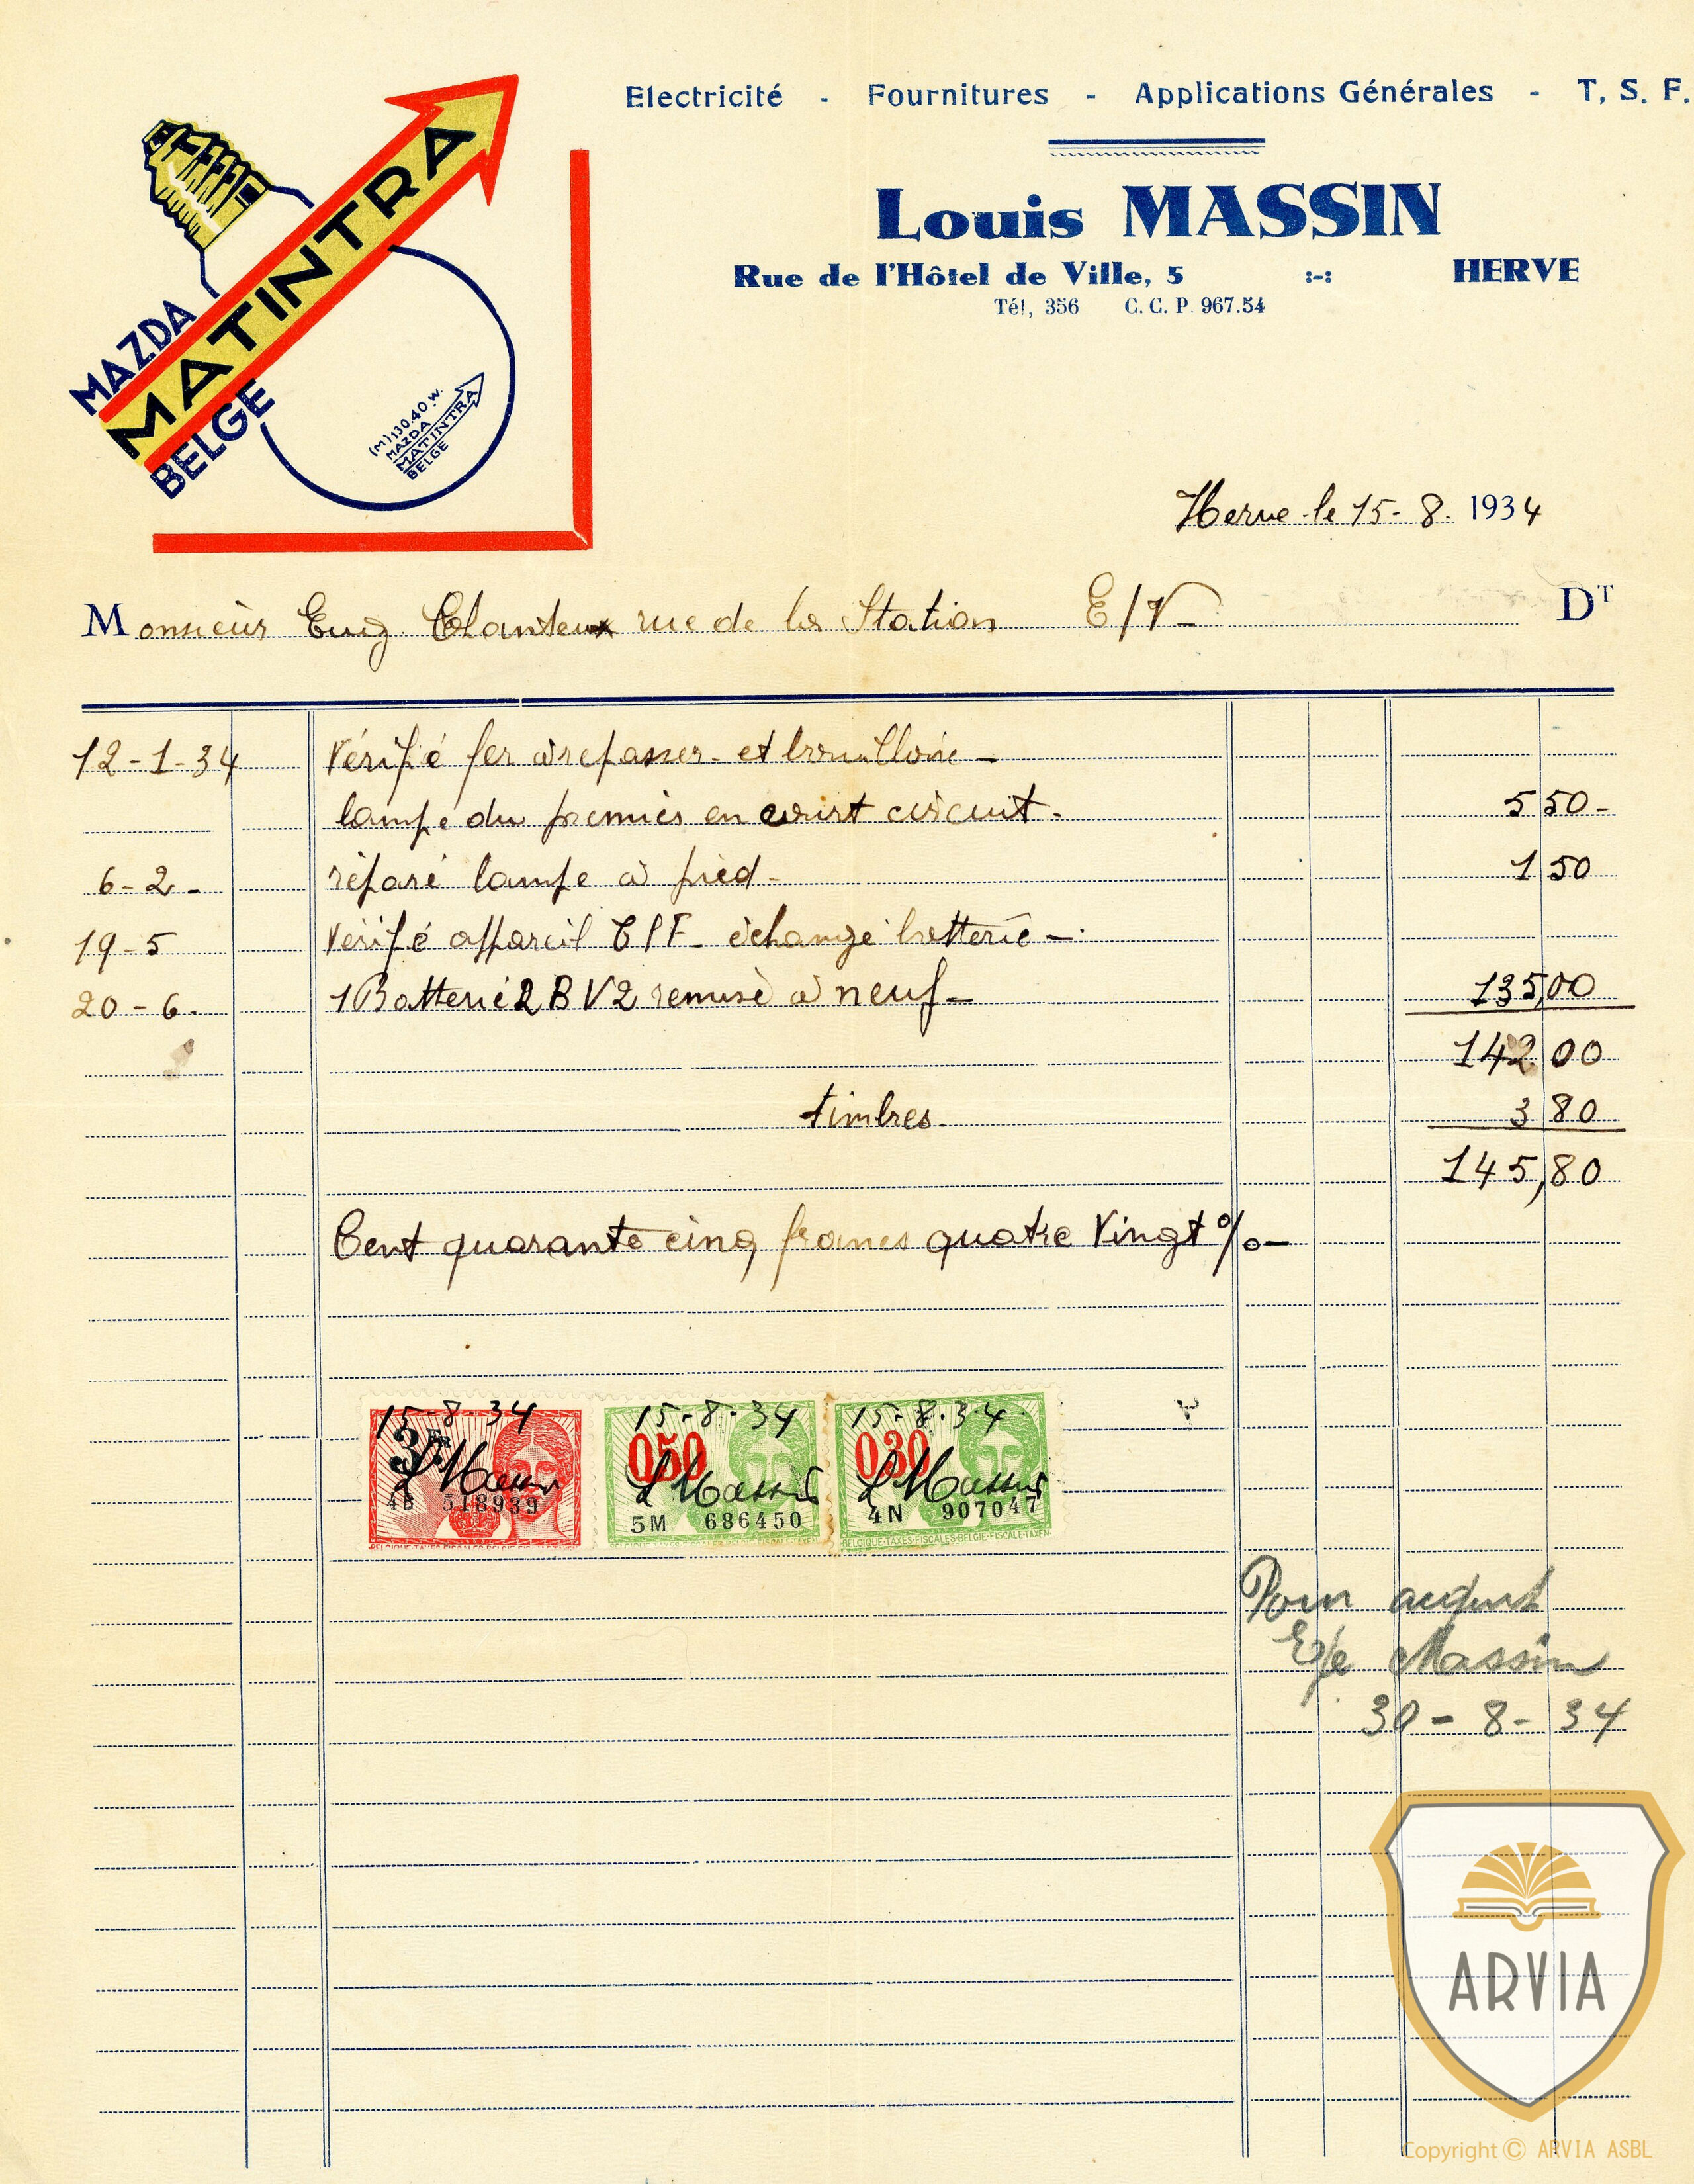 Electricité - Fournitures - Applications Générales - T. S. F.
Louis MASSIN
Rue de l'Hôtel de Ville, 5 :-: HERVE
Tél, 356 C. C. P. 967.54
MAZDA
MATINTRA
BELGE
(M) 130.40.W.
MAZDA
MATINTRA
BELGE
Herve le 15-8-1934
Monsieur Eug. rue de la Station E/V- DT
12-1-34 Vérifé fer à repasser - et bouilloire -
lampe du premier en court circuit - 5 50-
6-2- réparé lampe à pied - 1 50
19-5 Vérifé appareil TSF - échangé batterie -
20-6- 1 Batterie 2 B V2 remise à neuf - 135,00
142 00
timbres. 3 80
145,80
Cent quarante cinq francs quatre Vingt %-
15-8-34 15-8-34 15-8-34
3 FR 0.50 0.30
L Massin L Massin L Massin
4B 518939 5M 686450 4N 907047
BELGIQUE-TAXES-FISCALES-BELGIE-FISCALE-TAXEN
Pour acquit
Massin
30-8-34
ARVIA
Copyright © ARVIA ASBL